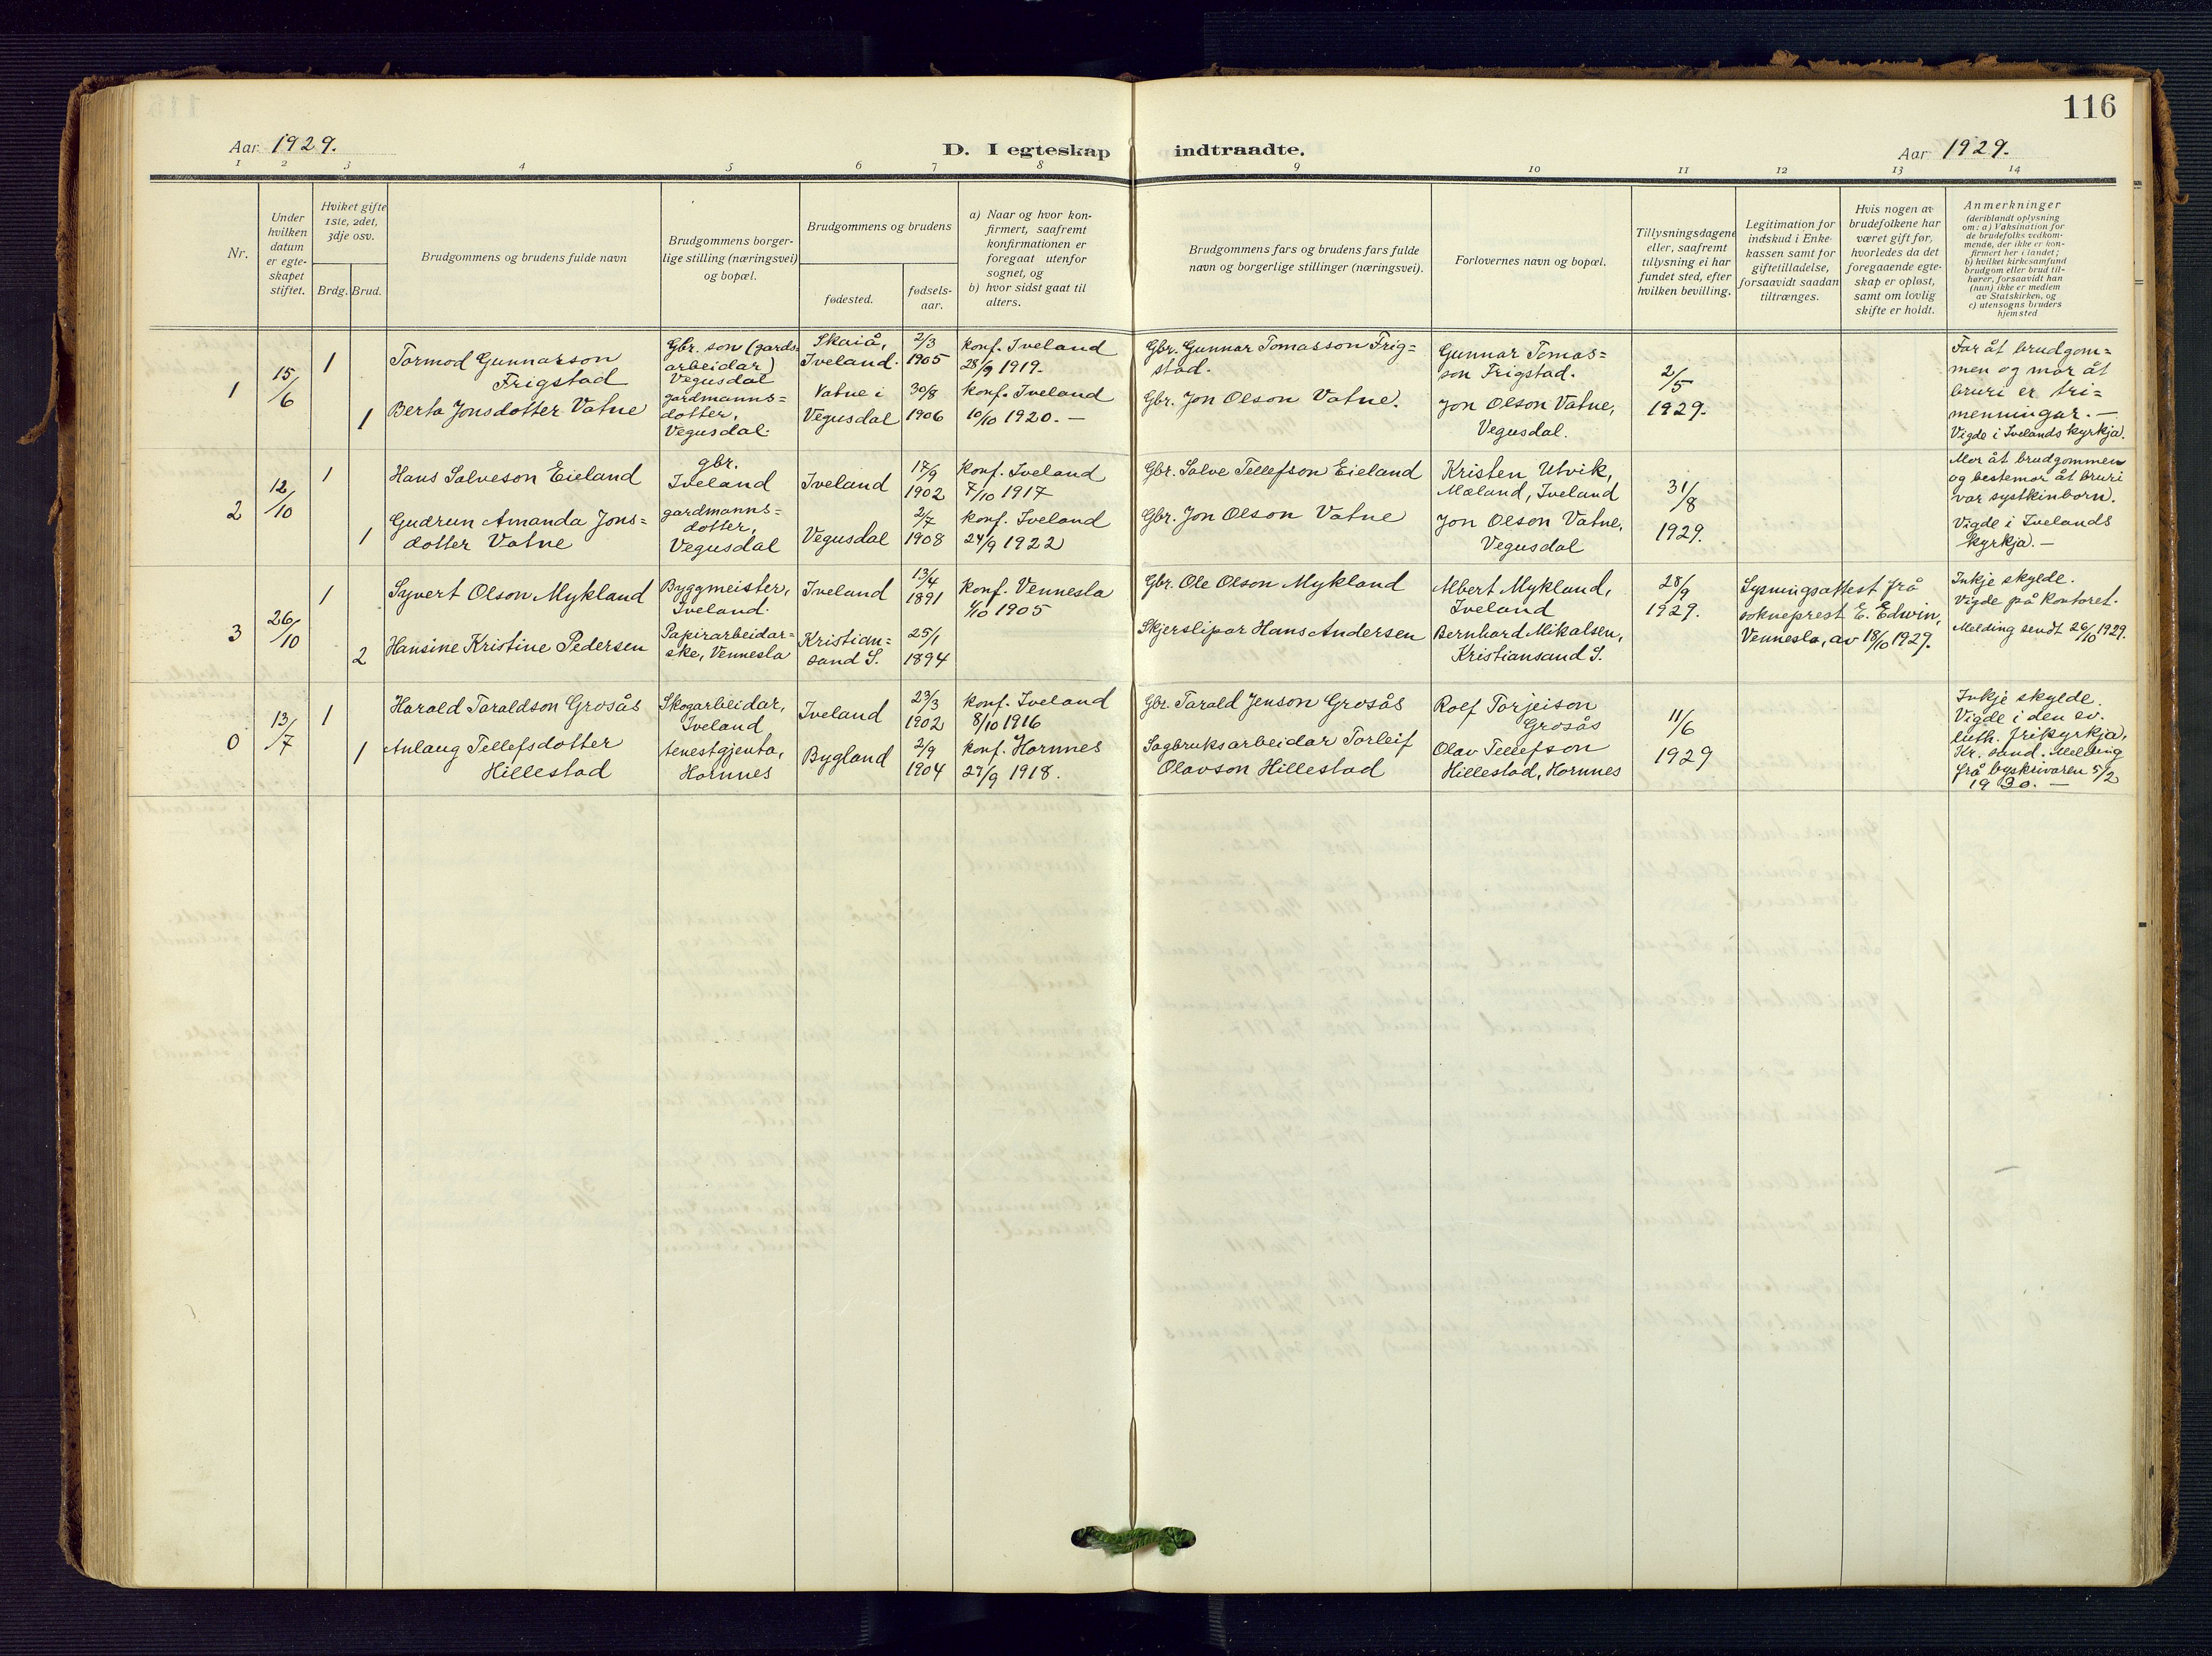 116
Aar 1929.
D. I egteskap indtraadte.
Aar 1929.
1 2 3 4 5 6 7 8 9 10 11 12 13 14
Nr.
Under
hvilken
datum
er egte-
skapet
stiftet.
Hviket gifte
1ste, 2det,
3dje osv.
Brdg. Brud.
Brudgommens og brudens fulde navn
Brudgommens borger-
lige stilling (næringsvei)
og bopæl.
Brudgommens og brudens
fødested.
fødsels-
aar.
a) Naar og hvor kon-
firmert, saafremt
konfirmationen er
foregaat utenfor
sognet, og
b) hvor sidst gaat til
alters.
Brudgommens fars og brudens fars fulde
navn og borgerlige stillinger (næringsvei).
Forlovernes navn og bopæl.
Tillysningsdagene
eller, saafremt
tillysning ei har
fundet sted, efter
hvilken bevilling.
Legitimation for
indskud i Enke-
kassen samt for
giftetilladelse,
forsaavidt saadan
tiltrænges.
Hvis nogen av
brudefolkene har
været gift før,
hvorledes da det
foregaaende egte-
skap er opløst,
samt om lovlig
skifte er holdt.
Anmerkninger
(deriblandt oplysning
om: a) Vaksination for
de brudefolks vedkom-
mende, der ikke er kon-
firmert her i landet;
b) hvilket kirkesamfund
brudgom eller brud til-
hører, forsaavidt han
(hun) ikke er medlem
av Statskirken, og
c) utensogns bruders
hjemsted
1
15/6
1
Tormod Gunnarson
Frigstad
Gbr. son (gards-
arbeidar)
Vegusdal
Skaiå,
Iveland.
2/3
1905
konf. Iveland
28/9 1919.
Gbr. Gunnar Tomasson Frig=
stad.
Gunnar Tomas=
son Frigstad.
2/5
1929.
Far åt brudgom=
men og mor åt
bruri er tri=
menningar. —
Vigde i Ivelands kyrkja.
1
Berta Jonsdotter Vatne
gardmanns=
dotter,
Vegusdal.
Vatne i
Vegusdal
30/8
1906
konf. Iveland
10/10 1920. —
Gbr. Jon Olson Vatne.
Jon Olson Vatne,
Vegusdal.
2
12/10
1
Hans Salveson Eieland
gbr.
Iveland
Iveland
17/9
1902
konf. Iveland
7/10 1917
Gbr. Salve Tellefson Eieland
Kristen Utvik,
Mæland, Iveland
31/8
1929.
Mor åt brudgommen
og bestemor åt bruri
var systkinborn.
Vigde i Ivelands
kyrkja. —
1
Gudrun Amanda Jons=
dotter Vatne
gardmanns=
dotter,
Vegusdal
Vegusdal
2/7
1908
konf. Iveland
24/9 1922
Gbr. Jon Olson Vatne
Jon Olson Vatne,
Vegusdal
3
26/10
1
Syvert Olson Mykland
Byggmeister,
Iveland.
Iveland
13/4
1891
konf. Vennesla
1/10 1905
Gbr. Ole Olson Mykland
Albert Mykland,
Iveland
28/9
1929.
Lysningsattest frå
sokneprest E. Edwin,
Vennesla, av 18/10 1929.
Inkje skylde.
Vigde på kontoret.
Melding sendt 26/10 1929.
2
Hansine Kristine Pedersen
Papirarbeidar=
ske, Vennesla
Kristian=
sand S.
25/1
1894
Skjerslipar Hans Andersen
Bernhard Mikalsen,
Kristiansand S.
0
13/7
1
Harald Taraldson Grosås
Skogarbeidar,
Iveland
Iveland
23/3
1902
konf. Iveland
8/10 1916
Gbr. Tarald Jenson Grosås
Rolf Torjeison
Grosås
11/6
1929
Inkje skylde.
Vigde i den ev.
luth. frikyrkja,
Kr. sand. Melding
frå byskrivaren 5/2
1930. —
1
Anlaug Tellefsdotter
Hillestad
tenestgjenta,
Hornnes
Bygland
2/9
1904
konf. Hornnes
29/9 1918.
Sagbruksarbeidar Torleif
Olavson Hillestad
Olav Tellefson
Hillestad, Hornnes